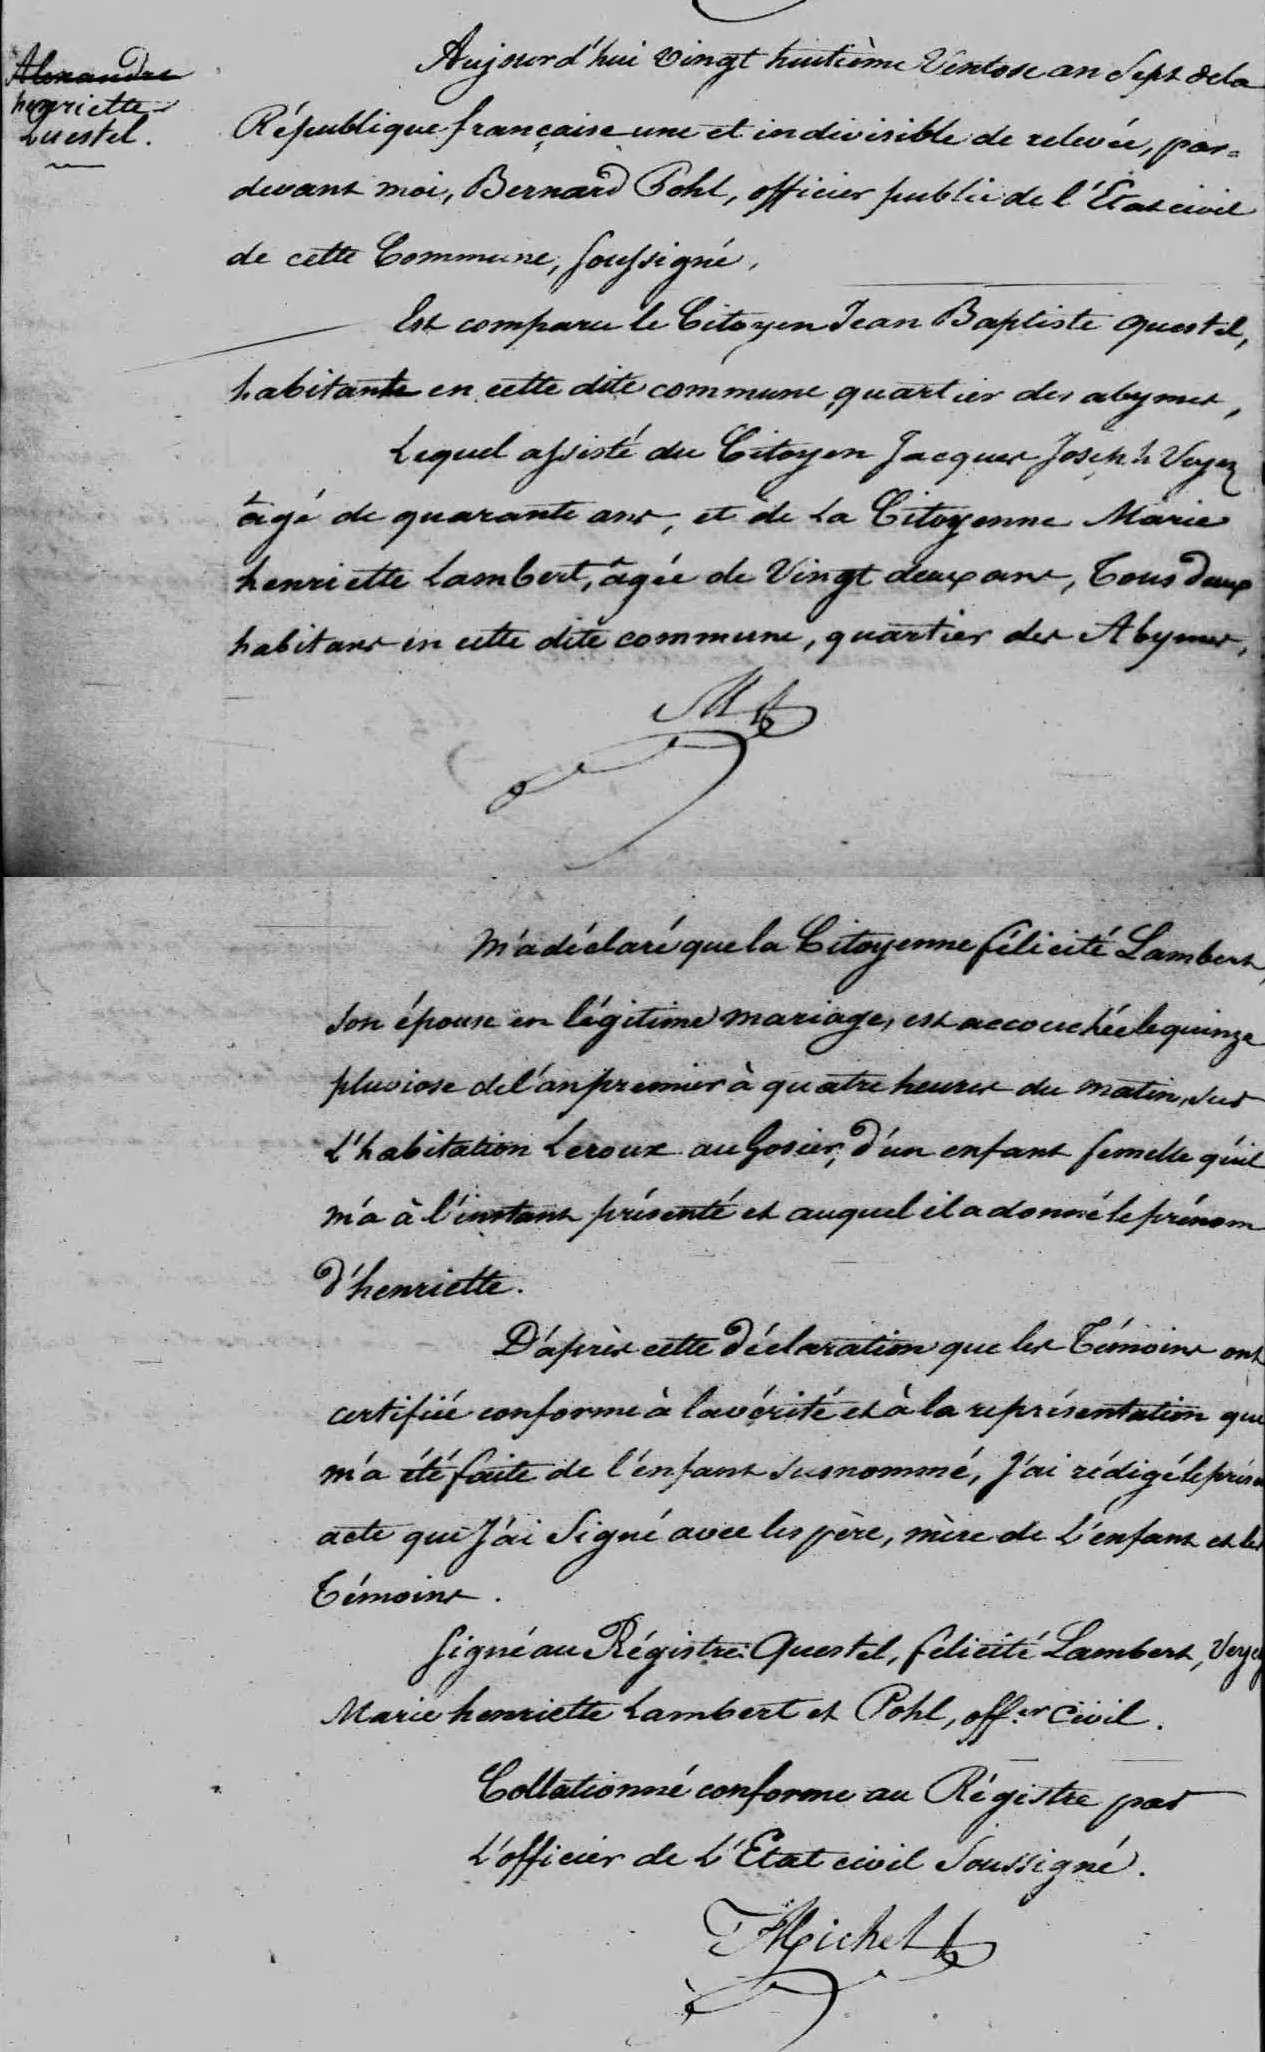 Alexandre
henriette
Questel.
Aujourd'hui vingt huitième Ventose an Sept de la
République française une et indivisible de relevée, par=
devant moi, Bernard Pohl, officier public de l'Etat civil
de cette Commune, soussigné,
Est comparu le Citoyen Jean Baptiste Questel,
habitante en cette dite commune quartier des abymes,
Lequel assisté du Citoyen Jacques Joseph Voyez
âgé de quarante ans, et de La Citoyenne Marie
henriette Lambert, âgée de Vingt deux ans, Tous deux
habitans en cette dite commune, quartier des Abymes,
M'a déclaré que la Citoyenne félicité Lambert,
son épouse en légitime mariage, est accouchée le quinze
pluviose de l'an premier à quatre heures du matin, sur
L'habitation Leroux au Gosier, d'un enfant femelle qu'il
m'a à l'instant présenté et auquel il a donné le prénom
d'henriette.
D'après cette déclaration que les Témoins ont
certifiié conforme à la vérité et à la représentation qui
m'a été faite de l'enfant susnommé, J'ai rédigé le prése
acte que J'ai Signé avec les père, mère de L'enfant et les
Témoins.
Signé au Régistre: Questel, félicité Lambert, Voyez
Marie henriette Lambert et Pohl, off.er Civil.
Collationné conforme au Régistre par
L'officier de L'Etat civil Soussigné.
Michel